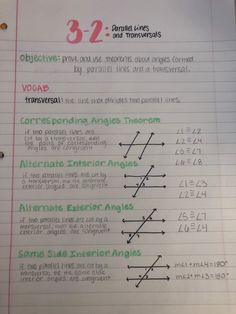 3-2: Parallel Lines
and Transversals
Objective: prove and use theorems about angles formed
by parallel lines and a transversal.
VOCAB
transversal: the line that divides two parallel lines.
Corresponding Angles Theorem
if two parallel lines are
cut by a transversal, then
the pairs of corresponding
angles are congruent
∠1 ≅ ∠2
∠2 ≅ ∠4
∠5 ≅ ∠7
∠6 ≅ ∠8
Alternate Interior Angles
if two parallel lines are cut by
a transversal, then the alternate
interior angles are congruent
∠1 ≅ ∠3
∠2 ≅ ∠4
Alternate Exterior Angles
if two parallel lines are cut by a
transversal, then the alternate
exterior angles are congruent
∠5 ≅ ∠7
∠6 ≅ ∠4
Same Side Interior Angles
if two parallel lines are cut by a
transversal, then the same side
interior angles are congruent
m∠1 + m∠4 = 180°
m∠2 + m∠3 = 180°